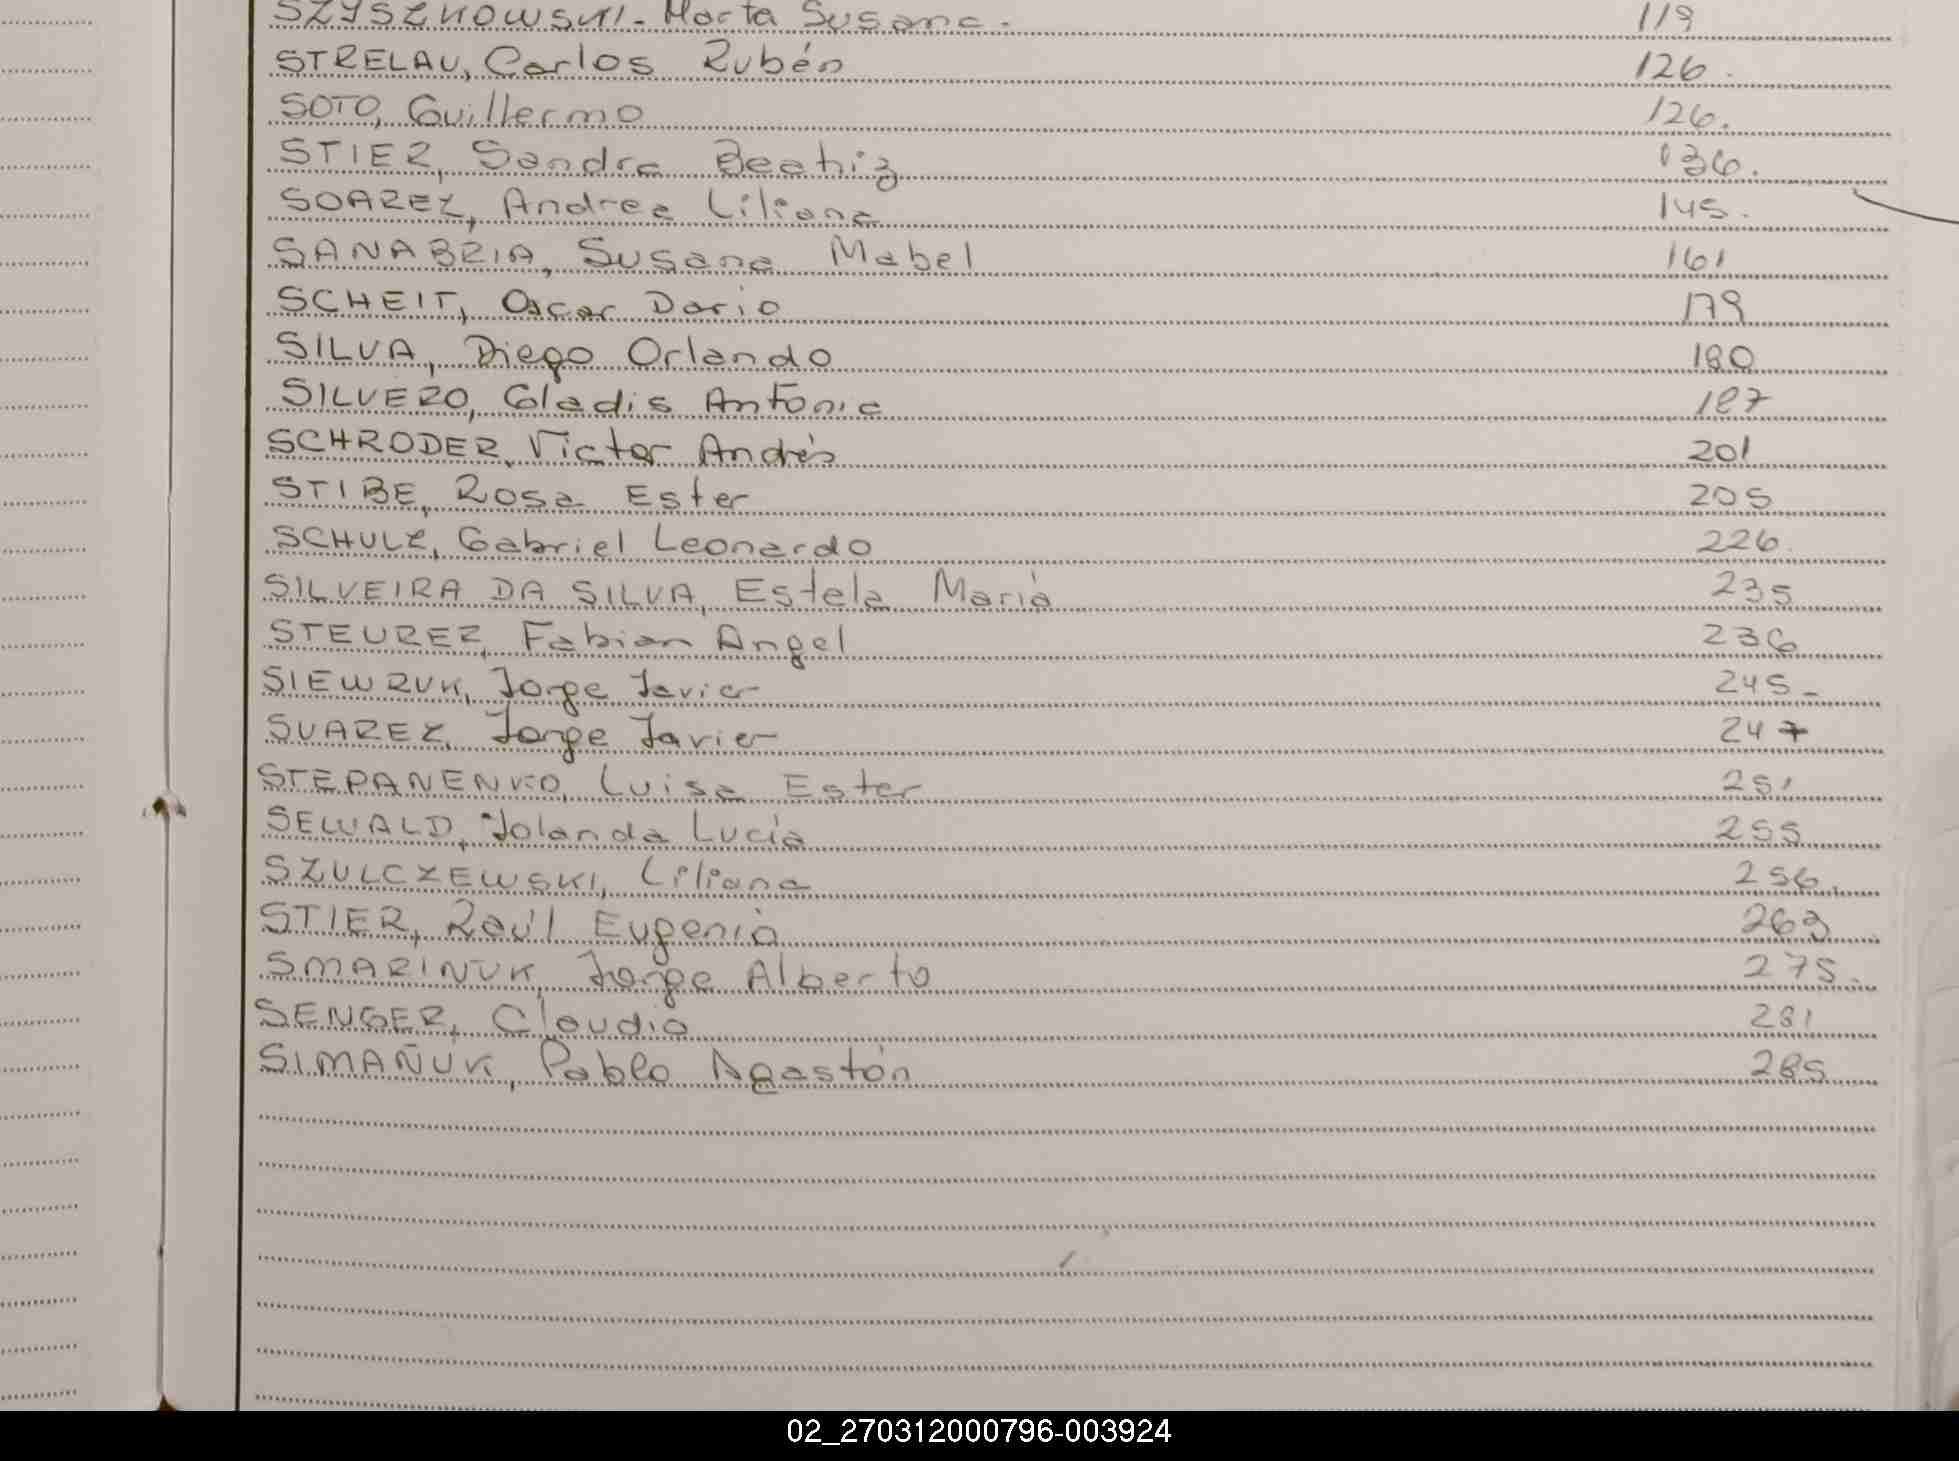 SZYSZKOWSKI - Marta Susana. 119
STRELAU, Carlos Rubén 126.
SOTO, Guillermo 126.
STIER, Sandra Beatriz 136.
SOAREZ, Andrea Liliana 145.
SANABRIA, Susana Mabel 161
SCHEIT, Oscar Dario 179
SILVA, Diego Orlando 180
SILVERO, Gladis Antonia 187
SCHRODER, Victor Andrés 201
STIBE, Rosa Ester 205
SCHULZ, Gabriel Leonardo 226.
SILVEIRA DA SILVA, Estela Maria 235
STEURER, Fabian Angel 236
SIEWRUK, Jorge Javier 245-
SUAREZ, Jorge Javier 247
STEPANENKO, Luisa Ester 251
SEWALD, Yolanda Lucía 255
SZULCZEWSKI, Liliana 256.
STIER, Raúl Eugenio 263
SMARINUK, Jorge Alberto 275.
SENGER, Claudio 281
SIMAÑUK, Pablo Agastón 285
02_270312000796-003924